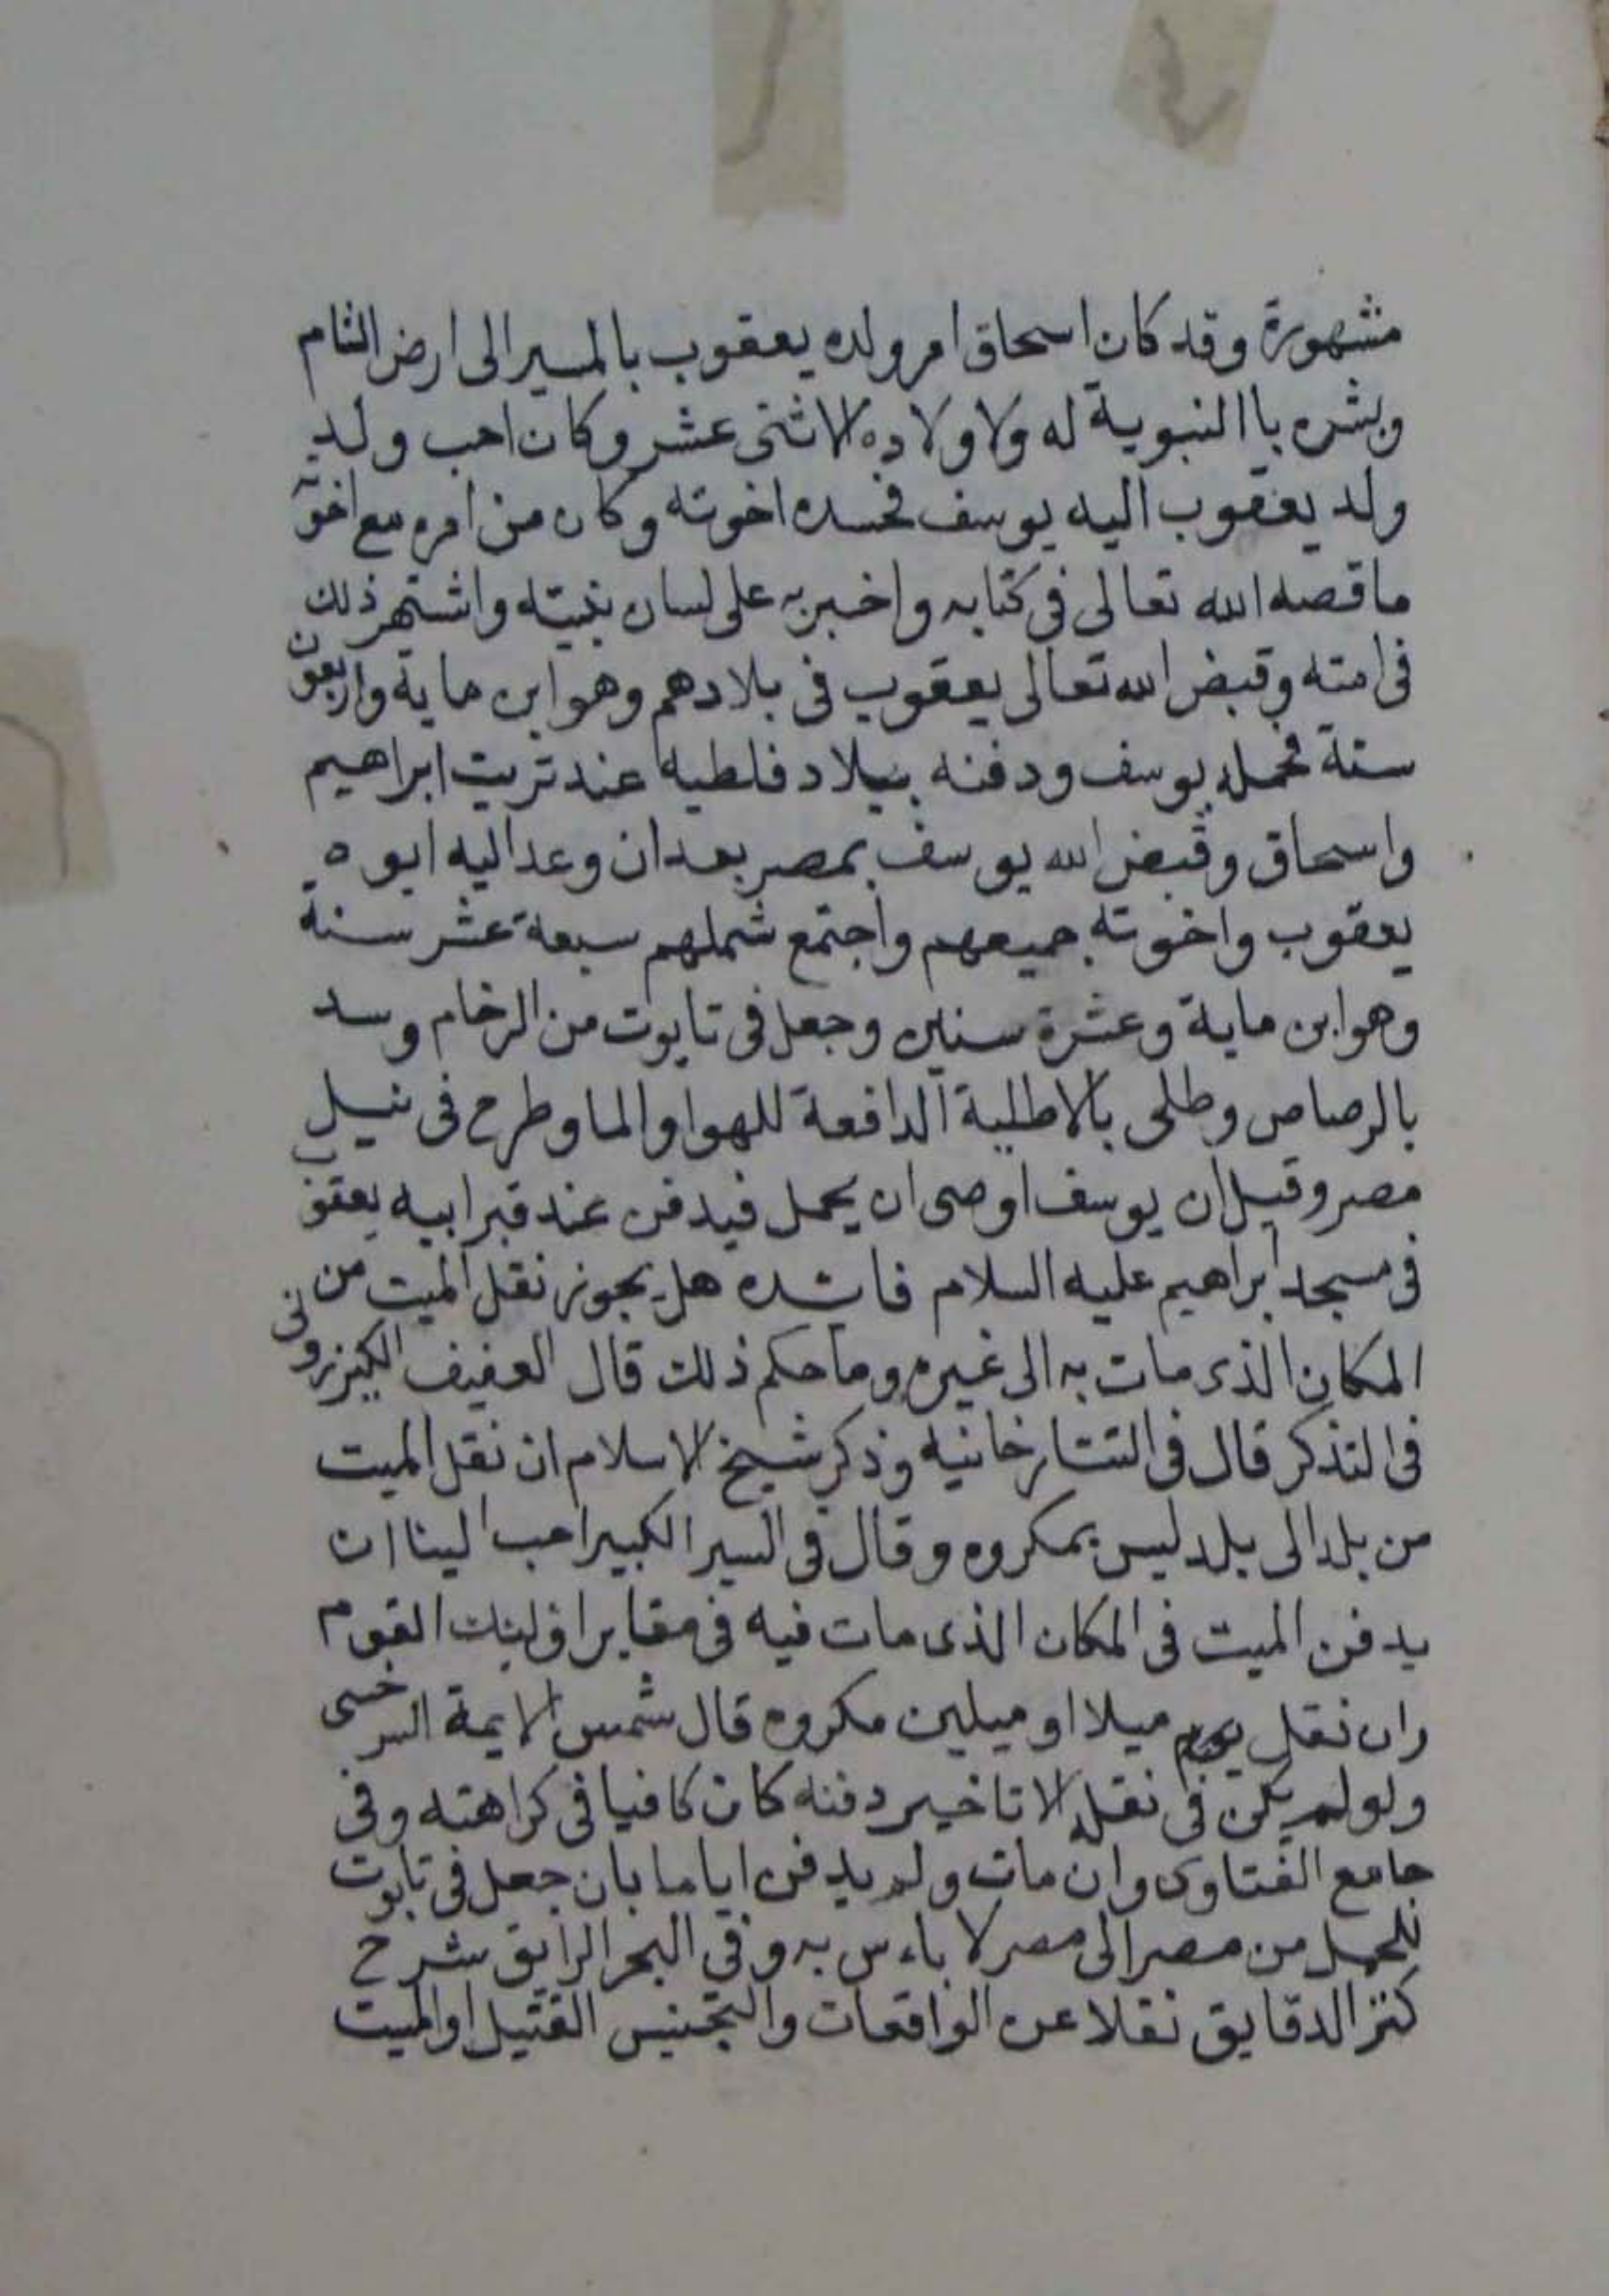 مشهورة وقد كان اسحاق امر ولده يعقوب بالمسير الى ارض الشام
وبشره با النبوية له ولاولاده الاثنى عشر وكان احب ولد
ولد يعقوب اليه يوسف فحسده اخوته وكان من امره مع اخوته
ما قصه الله تعالى فى كتابه واخبر به على لسان نبيته واشتهر ذلك
فى امته وقبض الله تعالى يعقوب فى بلادهم وهو ابن ماية واربعون
سنة فحمله يوسف ودفنه ببلاد فلطيه عند تربت ابراهيم
واسحاق وقبض الله يوسف بمصر بعد ان وعد اليه ابوه
يعقوب واخوته جميعهم واجتمع شملهم سبعة عشر سنة
وهو ابن ماية وعشرة سنين وجعل فى تابوت من الرخام وسد
بالرصاص وطلى بالاطلية الدافعة للهوا والما وطرح فى نيل
مصر وقيل ان يوسف اوصى ان يحمل فيدفن عند قبر ابيه يعقوب
فى مسجد ابراهيم عليه السلام فائده هل يجوز نقل الميت من
المكان الذى مات به الى غيره وما حكم ذلك قال العفيف الكيزرونى
فى التذكر قال فى التتارخانيه وذكر شيخ الاسلام ان نقل الميت
من بلد الى بلد ليس بمكروه وقال فى السير الكبير احب الينا ان
يدفن الميت فى المكان الذى مات فيه فى مقابر اوليئك القوم
وان نقل ميلا او ميلين مكروه قال شمس الايمة السرخسى
ولو لم يكن فى نقله الا تاخير دفنه كان كافيا فى كراهته وفى
جامع الفتاوى وان مات ولم يدفن اياما بان جعل فى تابوت
للحمل من مصر الى مصر لا باءس به وفى البحر الرايق شرح
كنز الدقايق نقلا عن الواقعات والتجنيس القتيل او الميت